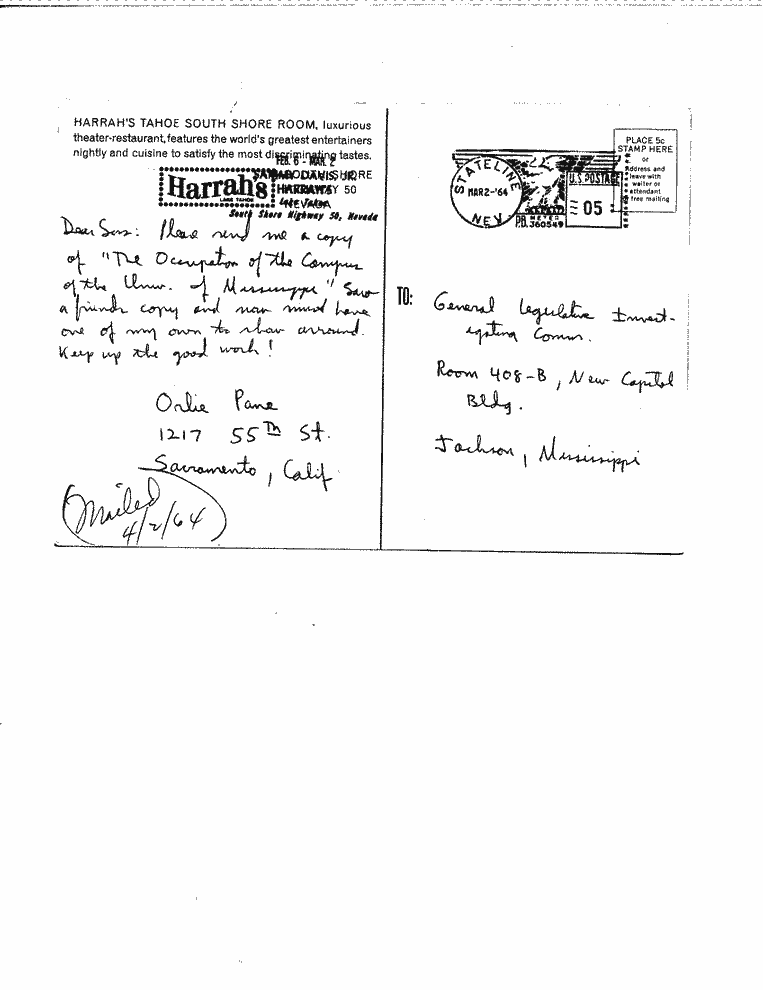 HARRAH'S TAHOE SOUTH SHORE ROOM, luxurious
theater-restaurant, features the world's greatest entertainers
nightly and cuisine to satisfy the most discriminating tastes.
FEB. 6 - MAR. 2
SAMMY DAVIS JR.
Harrah's
LAKE TAHOE
HARRAH'S
HIGHWAY 50
NEVADA
South Shore Highway 50, Nevada
Dear Sirs: Please send me a copy
of "The Occupation of the Campus
of the Univ. of Mississippi" Saw
a friends copy and now must have
one of my own to show arround.
Keep up the good work!
Orlie Pane
1217 55th St.
Sacramento, Calif.
Mailed
4/2/64
STATELINE
MAR 2-'64
NEV.
U.S. POSTAGE
05
P.B. METER
360549
PLACE 5c
STAMP HERE
or
address and
leave with
waiter or
attendant
free mailing
TO:
General Legislative Invest-
igating Comm.
Room 408-B, New Capitol
Bldg.
Jackson, Mississippi